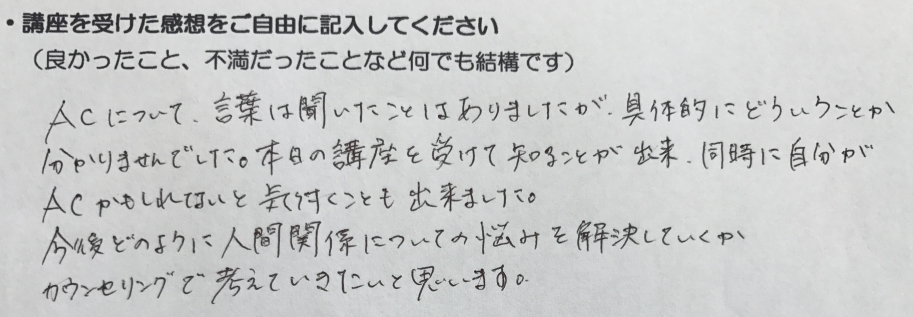 ・講座を受けた感想をご自由に記入してください
（良かったこと、不満だったことなど何でも結構です）
ACについて、言葉は聞いたことはありましたが、具体的にどういうことか
分かりませんでした。本日の講座を受けて知ることが出来、同時に自分が
ACかもしれないと気付くことも出来ました。
今後どのように人間関係についての悩みを解決していくか
カウンセリングで考えていきたいと思います。